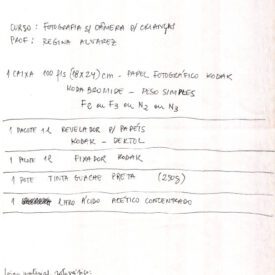 CURSO : FOTOGRAFIA S/ CÂMERA P/ CRIANÇAS
PROF : REGINA ALVAREZ
1 CAIXA 100 fls (18x24) cm - PAPEL FOTOGRÁFICO KODAK
KODABROMIDE - PESO SIMPLES
F2 ou F3 ou N2 ou N3
1 PACOTE 1l REVELADOR P/ PAPÉIS
KODAK - DEKTOL
1 PACOTE 1l FIXADOR KODAK
1 POTE TINTA GUACHE PRETA (250g)
1 LITRO ÁCIDO ACÉTICO CONCENTRADO